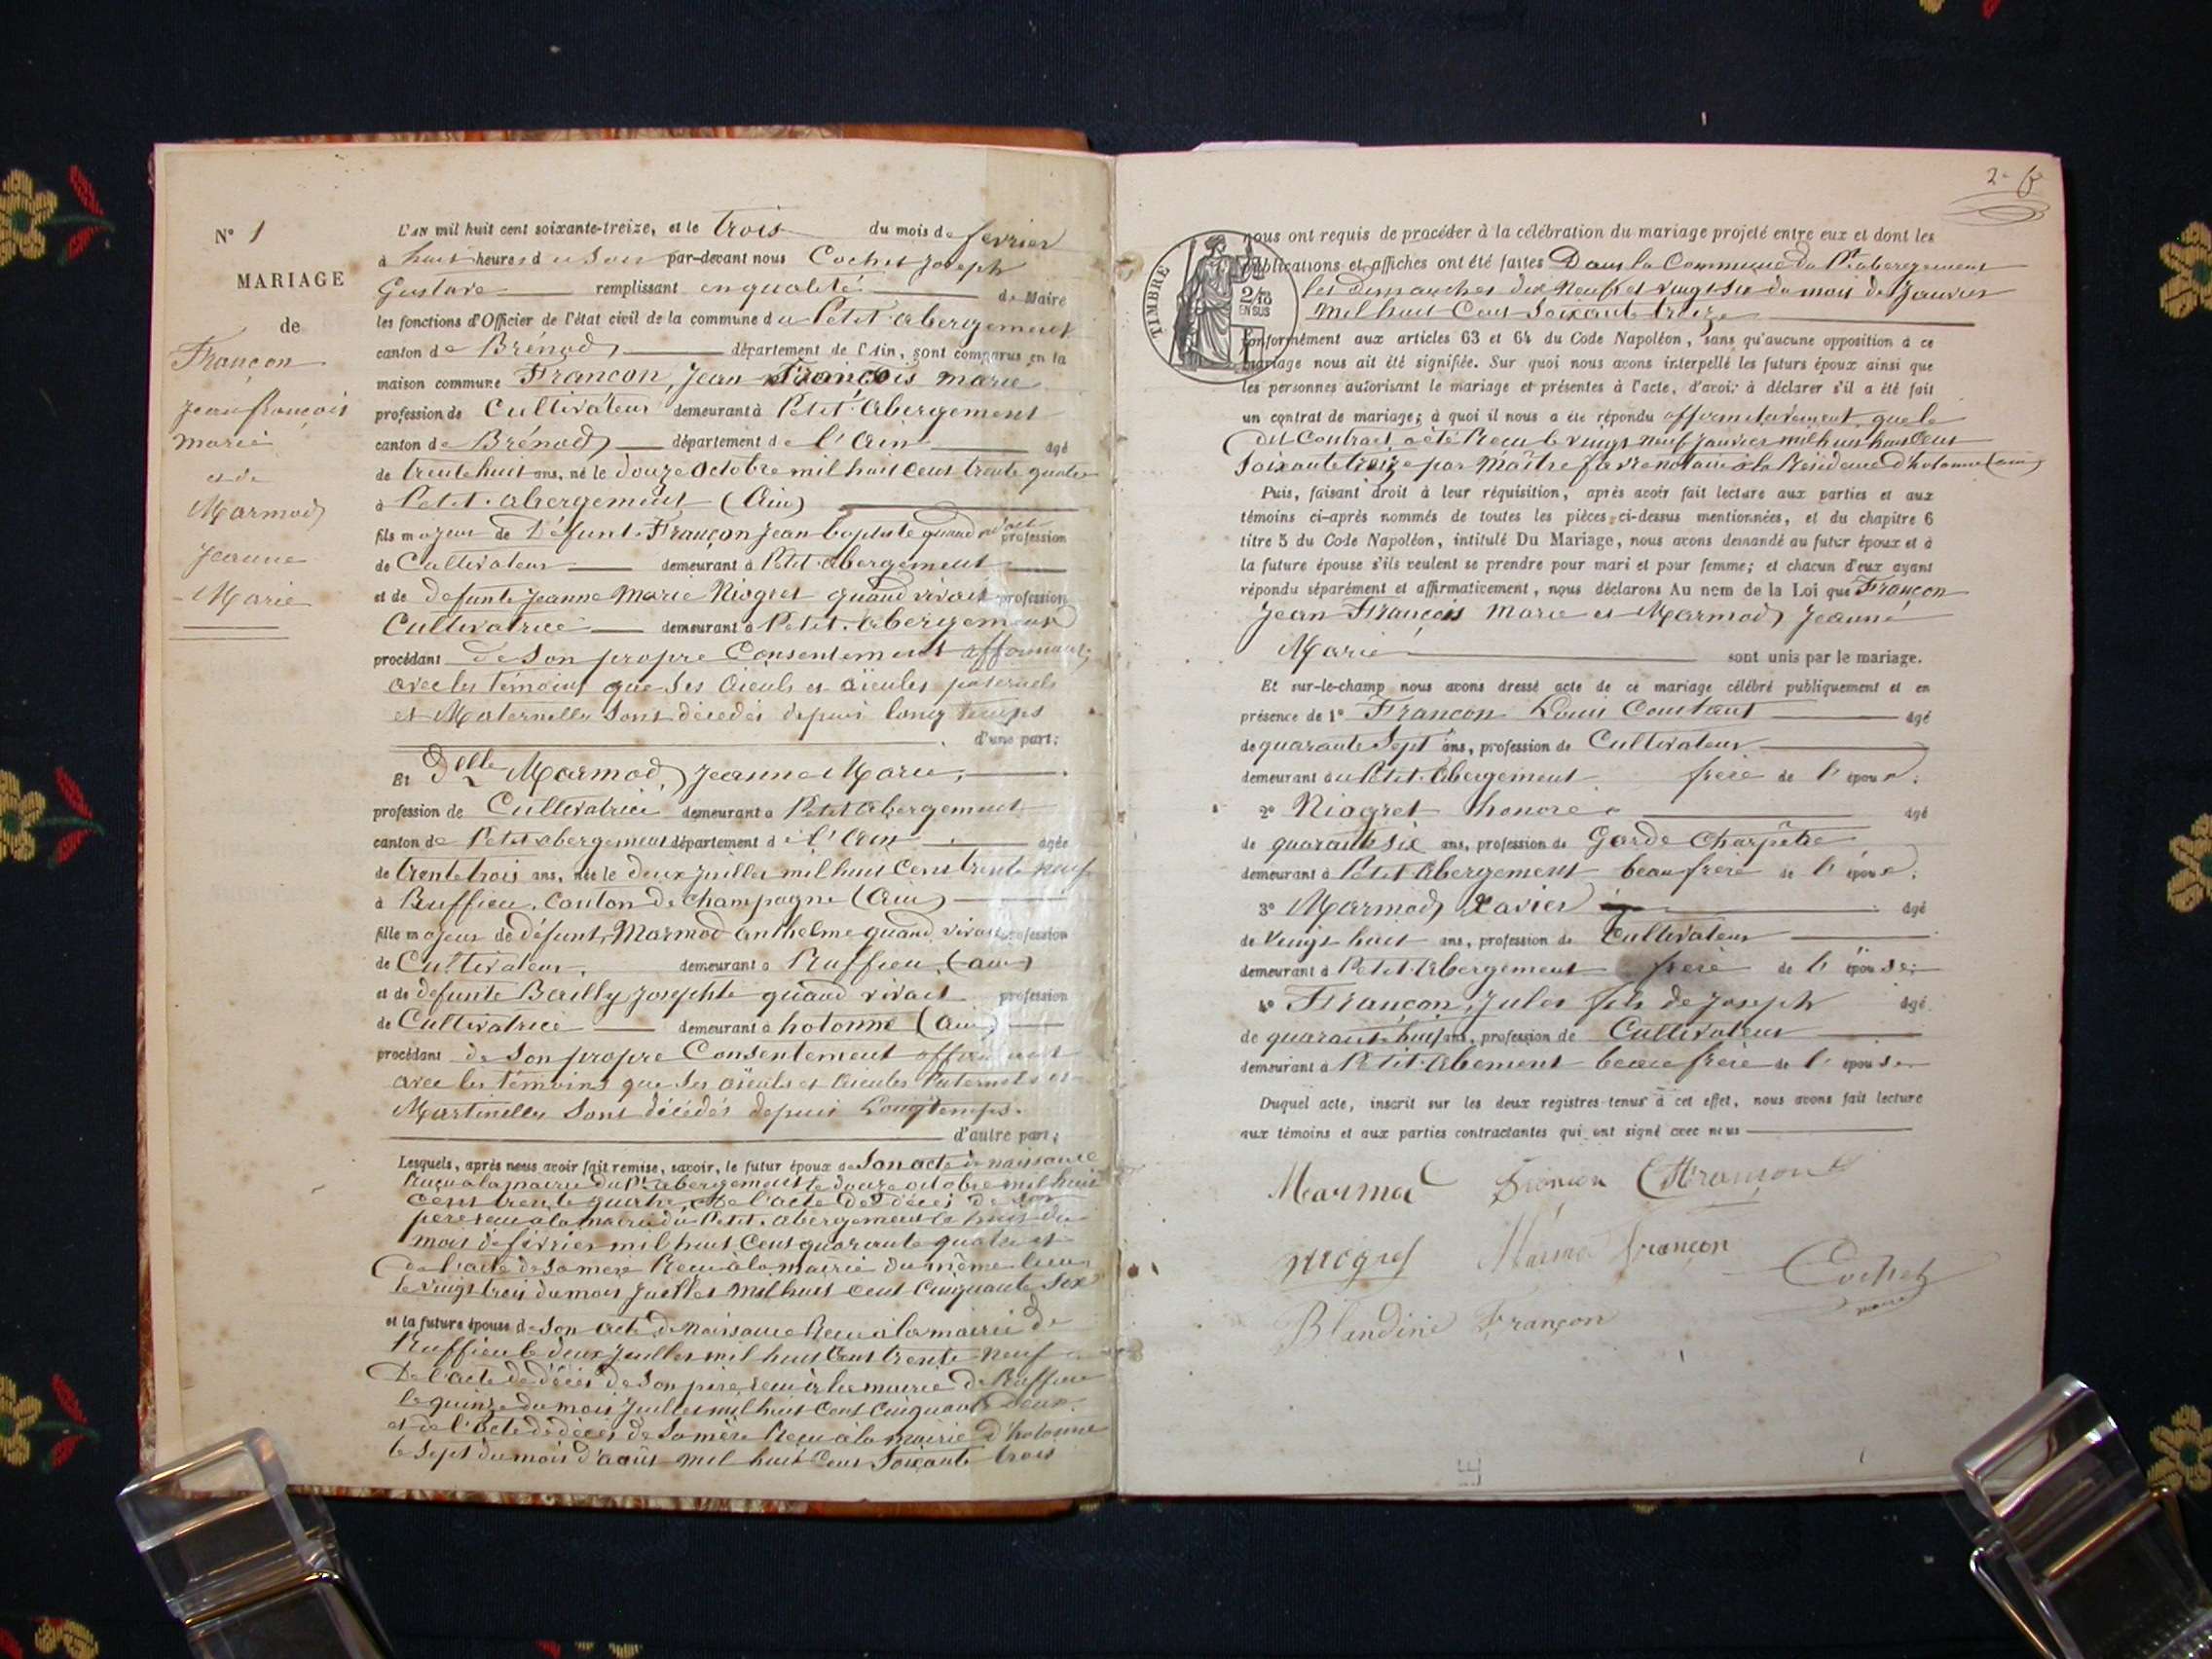 N° 1
MARIAGE
de
Françon
Jean françois
marie
et de
Marmod
Jeanne
Marie
L'AN mil huit cent soixante-treize, et le trois du mois de fevrier
à huit heures du Soir par-devant nous Cochet Joseph
Gustave remplissant en qualité de Maire
les fonctions d'Officier de l'état civil de la commune du Petit-abergement
canton de Brénod département de l'Ain, sont comparus en la
maison commune Francon, Jean François marie
profession de Cultivateur demeurant à Petit-Abergement
canton de Brénod département de l'Ain agé
de trente huit ans, né le douze Octobre mil huit cent trente quatre
à Petit-abergement (Ain)
fils majeur de Défunt Françon Jean baptiste quand vivait profession
de Cultivateur demeurant à Petit-Abergement
et de defunte Jeanne Marie Niogret quand vivait profession
Cultivatrice demeurant à Petit-Abergement
procédant de Son propre Consentement affirmant
avec les témoins que Ses Aieuls et aïeules paternels
et Maternelles Sont décedés depuis long temps
d'une part;
Et Delle Marmod, Jeanne Marie,
profession de Cultivatrice demeurant à Petit Abergement
canton de Petit abergement département de l'Ain agée
de trente trois ans, née le deux Juillet mil huit Cent trente neuf
à Ruffieu, Canton de Champagne (Ain)
fille majeur de défunt, Marmod Anthelme quand vivait profession
de Cultivateur, demeurant à Ruffieu, (ain)
et de defunte Bailly Josephte quand vivait profession
de Cultivatrice demeurant à hotonne (Ain)
procédant de Son propre Consentement affirmant
avec les témoins que Ses aïeuls et Aieules Paternels et
Martinelles Sont décédés depuis Longtemps.
d'autre part;
Lesquels, après nous avoir fait remise, savoir, le futur époux de Son acte de naissance
Reçu à la mairie du Pt abergement le douze octobre mil huit
cent trente quatre, de l'acte de décès de son
pere reçu à la mairie du Petit-abergement le huit du
mois de fevrier mil huit Cent quarante quatre et
de l'acte de sa mere Reçu à la mairie du même lieu
le vingt trois du mois Juillet mil huit cent Cinquante Six
et la future épouse de Son acte de Naissance Reçu à la mairie de
Ruffieu le deux Juillet mil huit Cent trente-neuf
De l'acte de décès de Son pere, reçu à la mairie de Ruffieu
le quinze du mois Juillet mil huit Cent Cinquante Deux
et de l'acte de décès de Sa mère Reçu à la mairie d'hotonne
le Sept du mois d'août mil huit Cent Soixante trois
2e
TIMBRE
2/10
EN SUS
nous ont requis de procéder à la célébration du mariage projeté entre eux et dont les
publications et affiches ont été faites Dans la Commune du Pt abergement
les dimanches dix Neuf et vingt Six du mois de Janvier
mil huit Cent Soixante treize
Conformément aux articles 63 et 64 du Code Napoléon, sans qu'aucune opposition à ce
mariage nous ait été signifiée. Sur quoi nous avons interpellé les futurs époux ainsi que
les personnes autorisant le mariage et présentes à l'acte, d'avoir à déclarer s'il a été fait
un contrat de mariage; à quoi il nous a été répondu affirmativement que le
dit Contrat a été Reçu le vingt neuf Janvier mil huit Cent
Soixante treize par Maître favre notaire à la Résidence d'hotonne (ain)
Puis, faisant droit à leur réquisition, après avoir fait lecture aux parties et aux
témoins ci-après nommés de toutes les pièces ci-dessus mentionnées, et du chapitre 6
titre 5 du Code Napoléon, intitulé Du Mariage, nous avons demandé au futur époux et à
la future épouse s'ils veulent se prendre pour mari et pour femme; et chacun d'eux ayant
répondu séparément et affirmativement, nous déclarons Au nom de la Loi que Françon
Jean François Marie et Marmod, Jeanne
Marie sont unis par le mariage.
Et sur-le-champ nous avons dressé acte de ce mariage célébré publiquement et en
présence de 1° Francon Louis Constant âgé
de quarante Sept ans, profession de Cultivateur
demeurant au Petit-Abergement frère de l'époux;
2° Niogret honoré âgé
de quarante six ans, profession de Garde Champêtre
demeurant à Petit Abergement beau frère de l'époux;
3° Marmod, Xavier âgé
de Vingt huit ans, profession de Cultivateur
demeurant à Petit-Abergement frere de l'épouse;
4° Françon, Jules fils de Joseph âgé
de quarante huit ans, profession de Cultivateur
demeurant à Petit-Abement beau frère de l'épouse
Duquel acte, inscrit sur les deux registres tenus à cet effet, nous avons fait lecture
aux témoins et aux parties contractantes qui ont signé avec nous
Marmod Françon
niogret françon
Cochet
maire
Blandine Françon